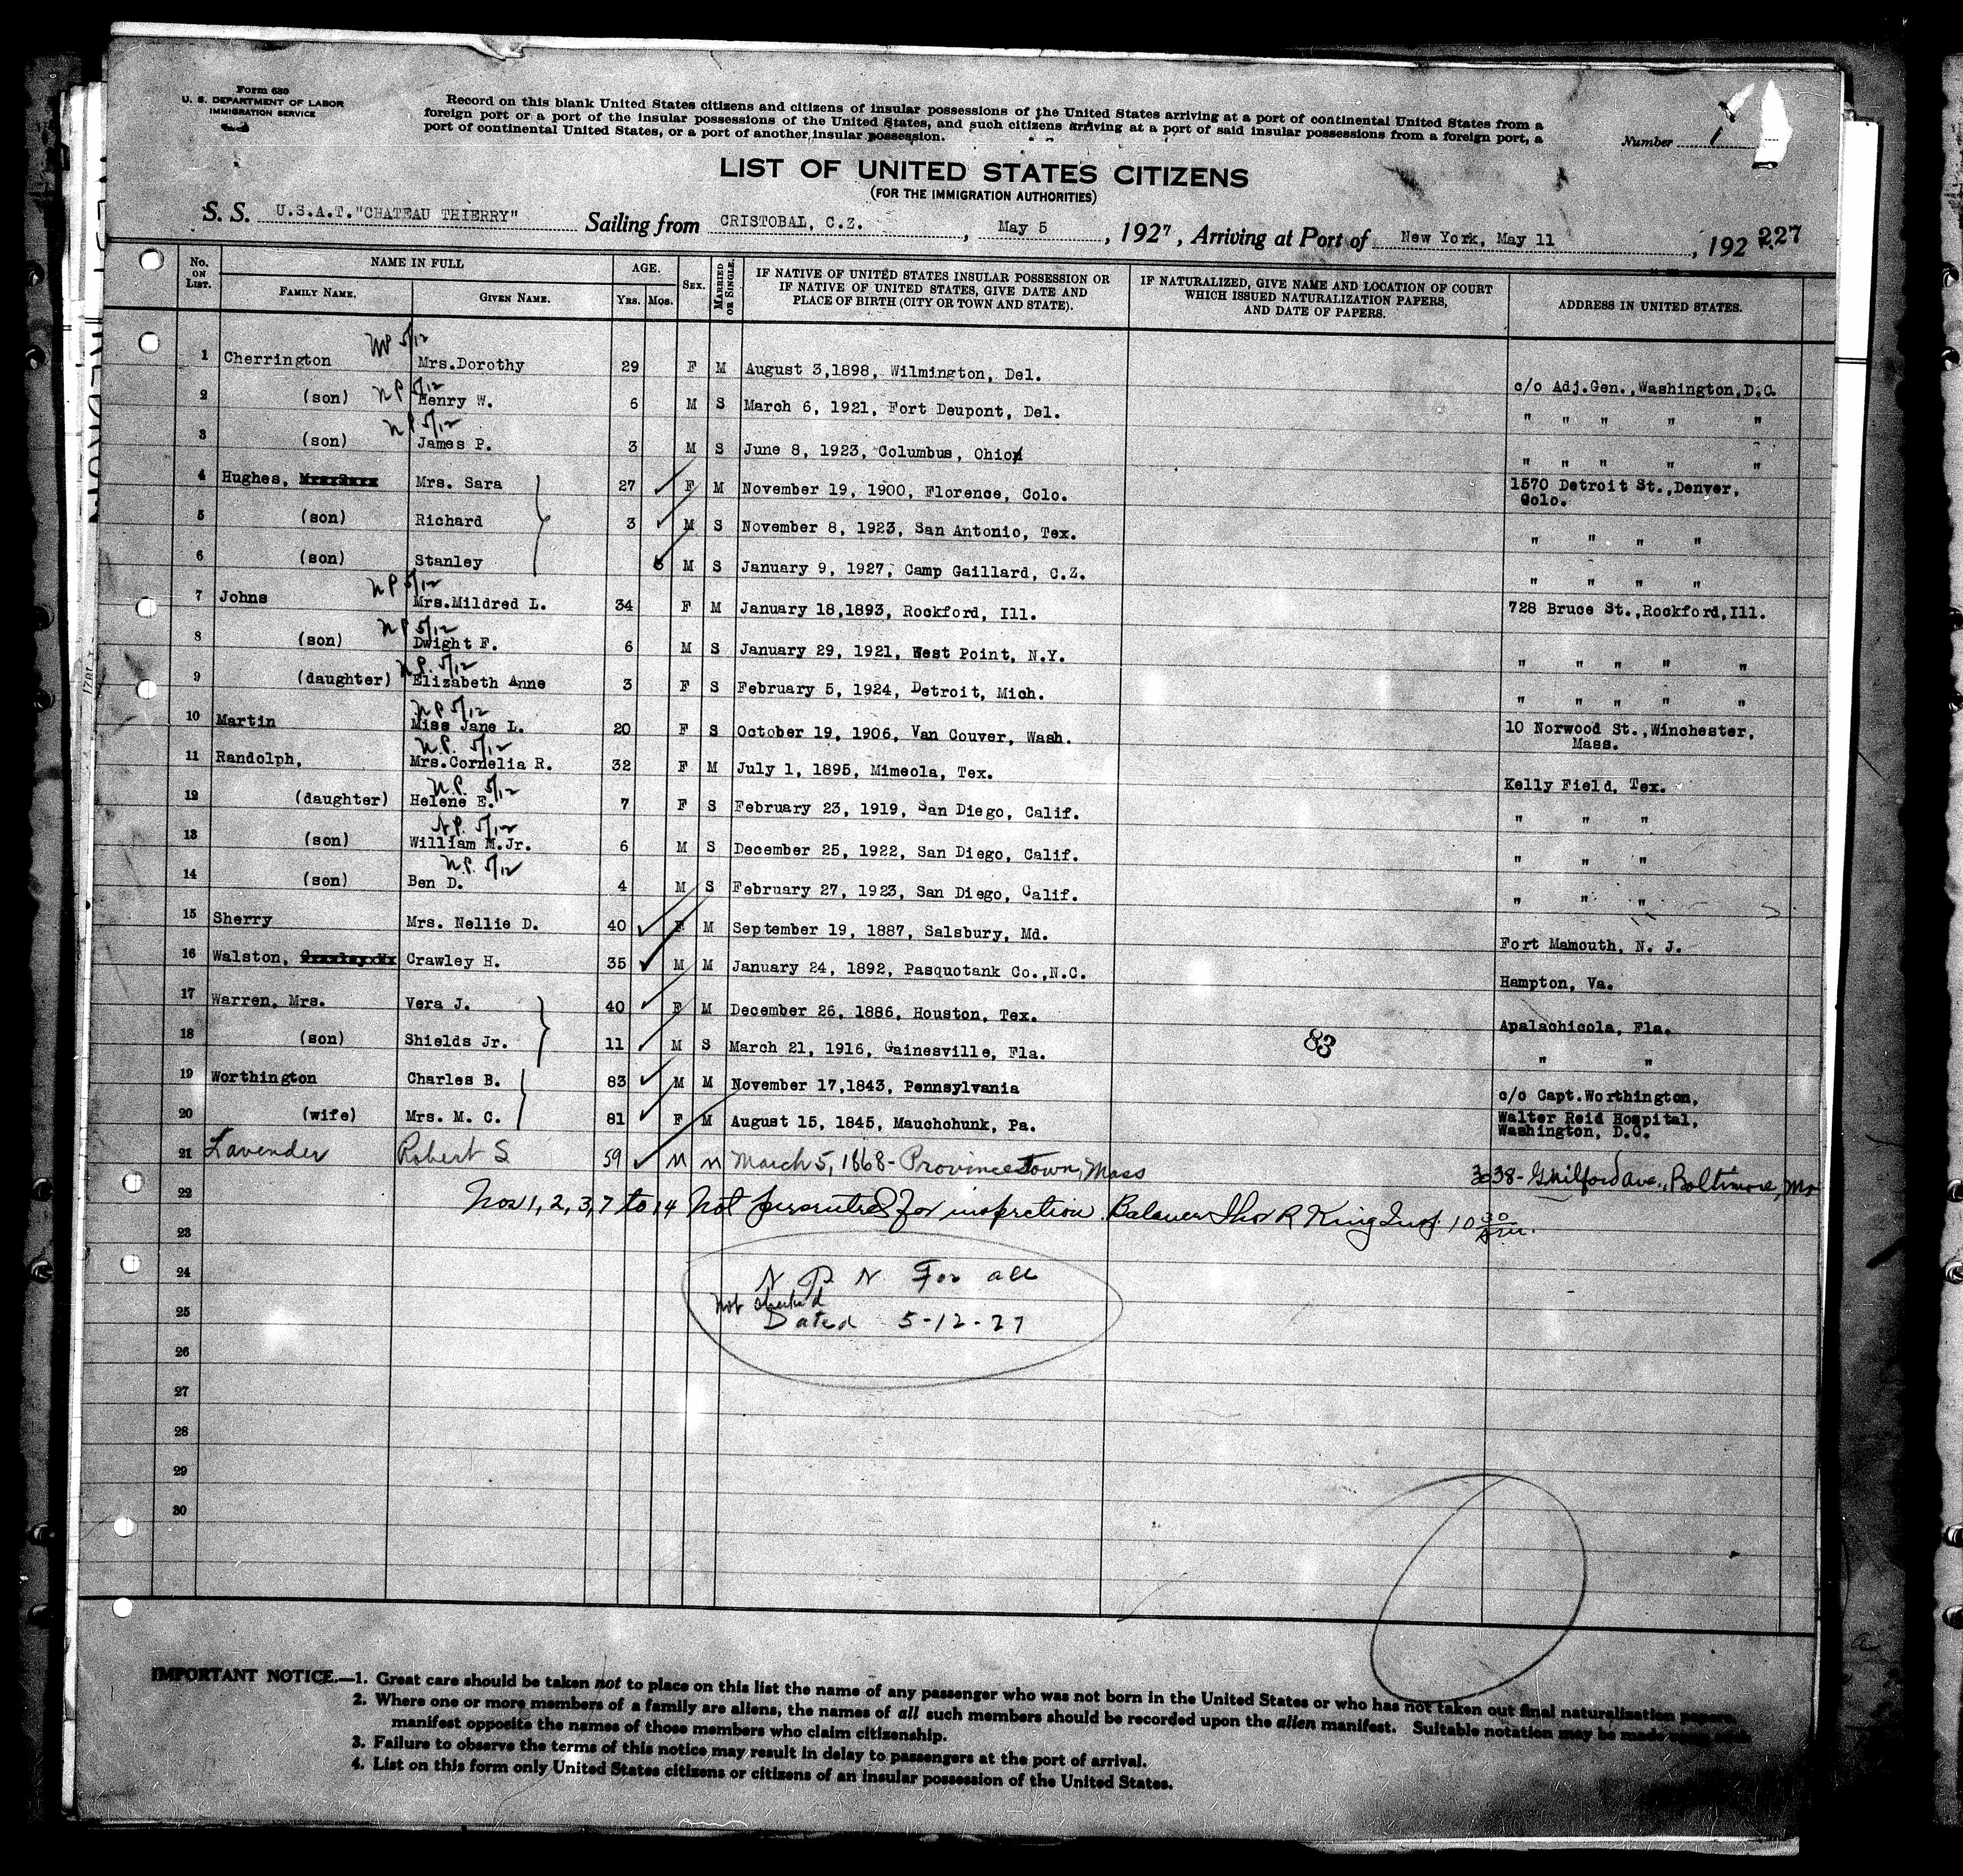 Form 630
U. S. DEPARTMENT OF LABOR
IMMIGRATION SERVICE
Record on this blank United States citizens and citizens of insular possessions of the United States arriving at a port of continental United States from a
foreign port or a port of the insular possessions of the United States, and such citizens arriving at a port of said insular possessions from a foreign port, a
port of continental United States, or a port of another insular possession.
Number 1
LIST OF UNITED STATES CITIZENS
(FOR THE IMMIGRATION AUTHORITIES)
S. S. U.S.A.T."CHATEAU THIERRY" Sailing from CRISTOBAL, C.Z. , May 5 , 1927, Arriving at Port of New York, May 11 , 192 227
No. ON LIST. NAME IN FULL FAMILY NAME. GIVEN NAME. AGE. YRS. MOS. SEX. MARRIED OR SINGLE. IF NATIVE OF UNITED STATES INSULAR POSSESSION OR IF NATIVE OF UNITED STATES, GIVE DATE AND PLACE OF BIRTH (CITY OR TOWN AND STATE). IF NATURALIZED, GIVE NAME AND LOCATION OF COURT WHICH ISSUED NATURALIZATION PAPERS, AND DATE OF PAPERS. ADDRESS IN UNITED STATES.
NP 5/12
1 Cherrington Mrs.Dorothy 29 F M August 3,1898, Wilmington, Del. c/o Adj.Gen.,Washington,D.C.
NP 5/12
2 (son) Henry W. 6 M S March 6, 1921, Fort Deupont, Del. " " " " "
NP 5/12
3 (son) James P. 3 M S June 8, 1923, Columbus, Ohio " " " " "
4 Hughes, Mrs. Sara 27 F M November 19, 1900, Florence, Colo. 1570 Detroit St.,Denver, Colo.
5 (son) Richard 3 M S November 8, 1923, San Antonio, Tex. " " " "
6 (son) Stanley M S January 9, 1927, Camp Gaillard, C.Z. " " " "
NP 5/12
7 Johns Mrs.Mildred L. 34 F M January 18,1893, Rockford, Ill. 728 Bruce St.,Rockford,Ill.
NP 5/12
8 (son) Dwight F. 6 M S January 29, 1921, West Point, N.Y. " " " " "
N.P. 5/12
9 (daughter) Elizabeth Anne 3 F S February 5, 1924, Detroit, Mich. " " " " "
NP 5/12
10 Martin Miss Jane L. 20 F S October 19, 1906, Van Couver, Wash. 10 Norwood St.,Winchester, Mass.
N.P. 5/12
11 Randolph, Mrs.Cornelia R. 32 F M July 1, 1895, Mimeola, Tex. Kelly Field, Tex.
N.P. 5/12
12 (daughter) Helene E. 7 F S February 23, 1919, San Diego, Calif. " " "
N.P. 5/12
13 (son) William M.Jr. 6 M S December 25, 1922, San Diego, Calif. " " "
N.P. 5/12
14 (son) Ben D. 4 M S February 27, 1923, San Diego, Calif. " " "
15 Sherry Mrs. Nellie D. 40 F M September 19, 1887, Salsbury, Md. Fort Mamouth, N. J.
16 Walston, Crawley H. 35 M M January 24, 1892, Pasquotank Co.,N.C. Hampton, Va.
17 Warren, Mrs. Vera J. 40 F M December 26, 1886, Houston, Tex. Apalachicola, Fla.
18 (son) Shields Jr. 11 M S March 21, 1916, Gainesville, Fla. 83 " "
19 Worthington Charles B. 83 M M November 17,1843, Pennsylvania c/o Capt.Worthington,
20 (wife) Mrs. M. C. 81 F M August 15, 1845, Mauchchunk, Pa. Walter Reid Hospital, Washington, D.C.
21 Lavender Robert S 59 M M March 5, 1868 - Provincetown, Mass 3038 - Guilford Ave., Baltimore, Md
22 Nos 1, 2, 3, 7 to 14 Not presented for inspection. Balance Thos R King Insp. 10 30 am.
23
24 N P N For all
not checked
25 Dated 5-12-27
26
27
28
29
30
IMPORTANT NOTICE.—1. Great care should be taken not to place on this list the name of any passenger who was not born in the United States or who has not taken out final naturalization papers.
2. Where one or more members of a family are aliens, the names of all such members should be recorded upon the alien manifest. Suitable notation may be made
manifest opposite the names of those members who claim citizenship.
3. Failure to observe the terms of this notice may result in delay to passengers at the port of arrival.
4. List on this form only United States citizens or citizens of an insular possession of the United States.